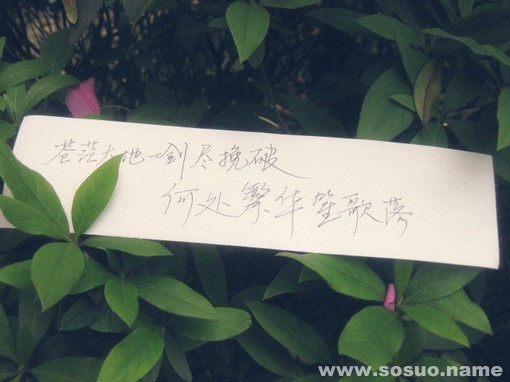 苍茫大地一剑尽挽破
何处繁华笙歌落
www.sosuo.name